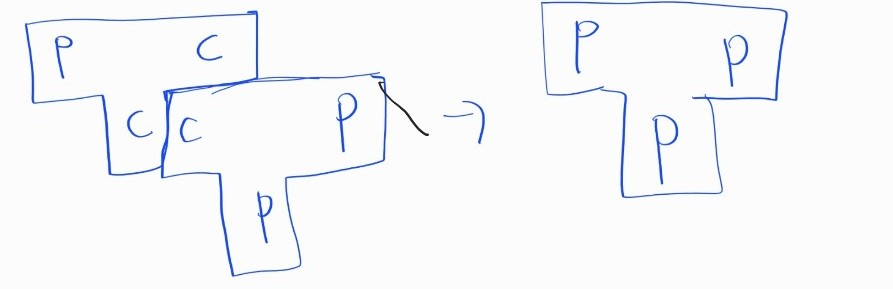 P C
C C P
P
P P
P